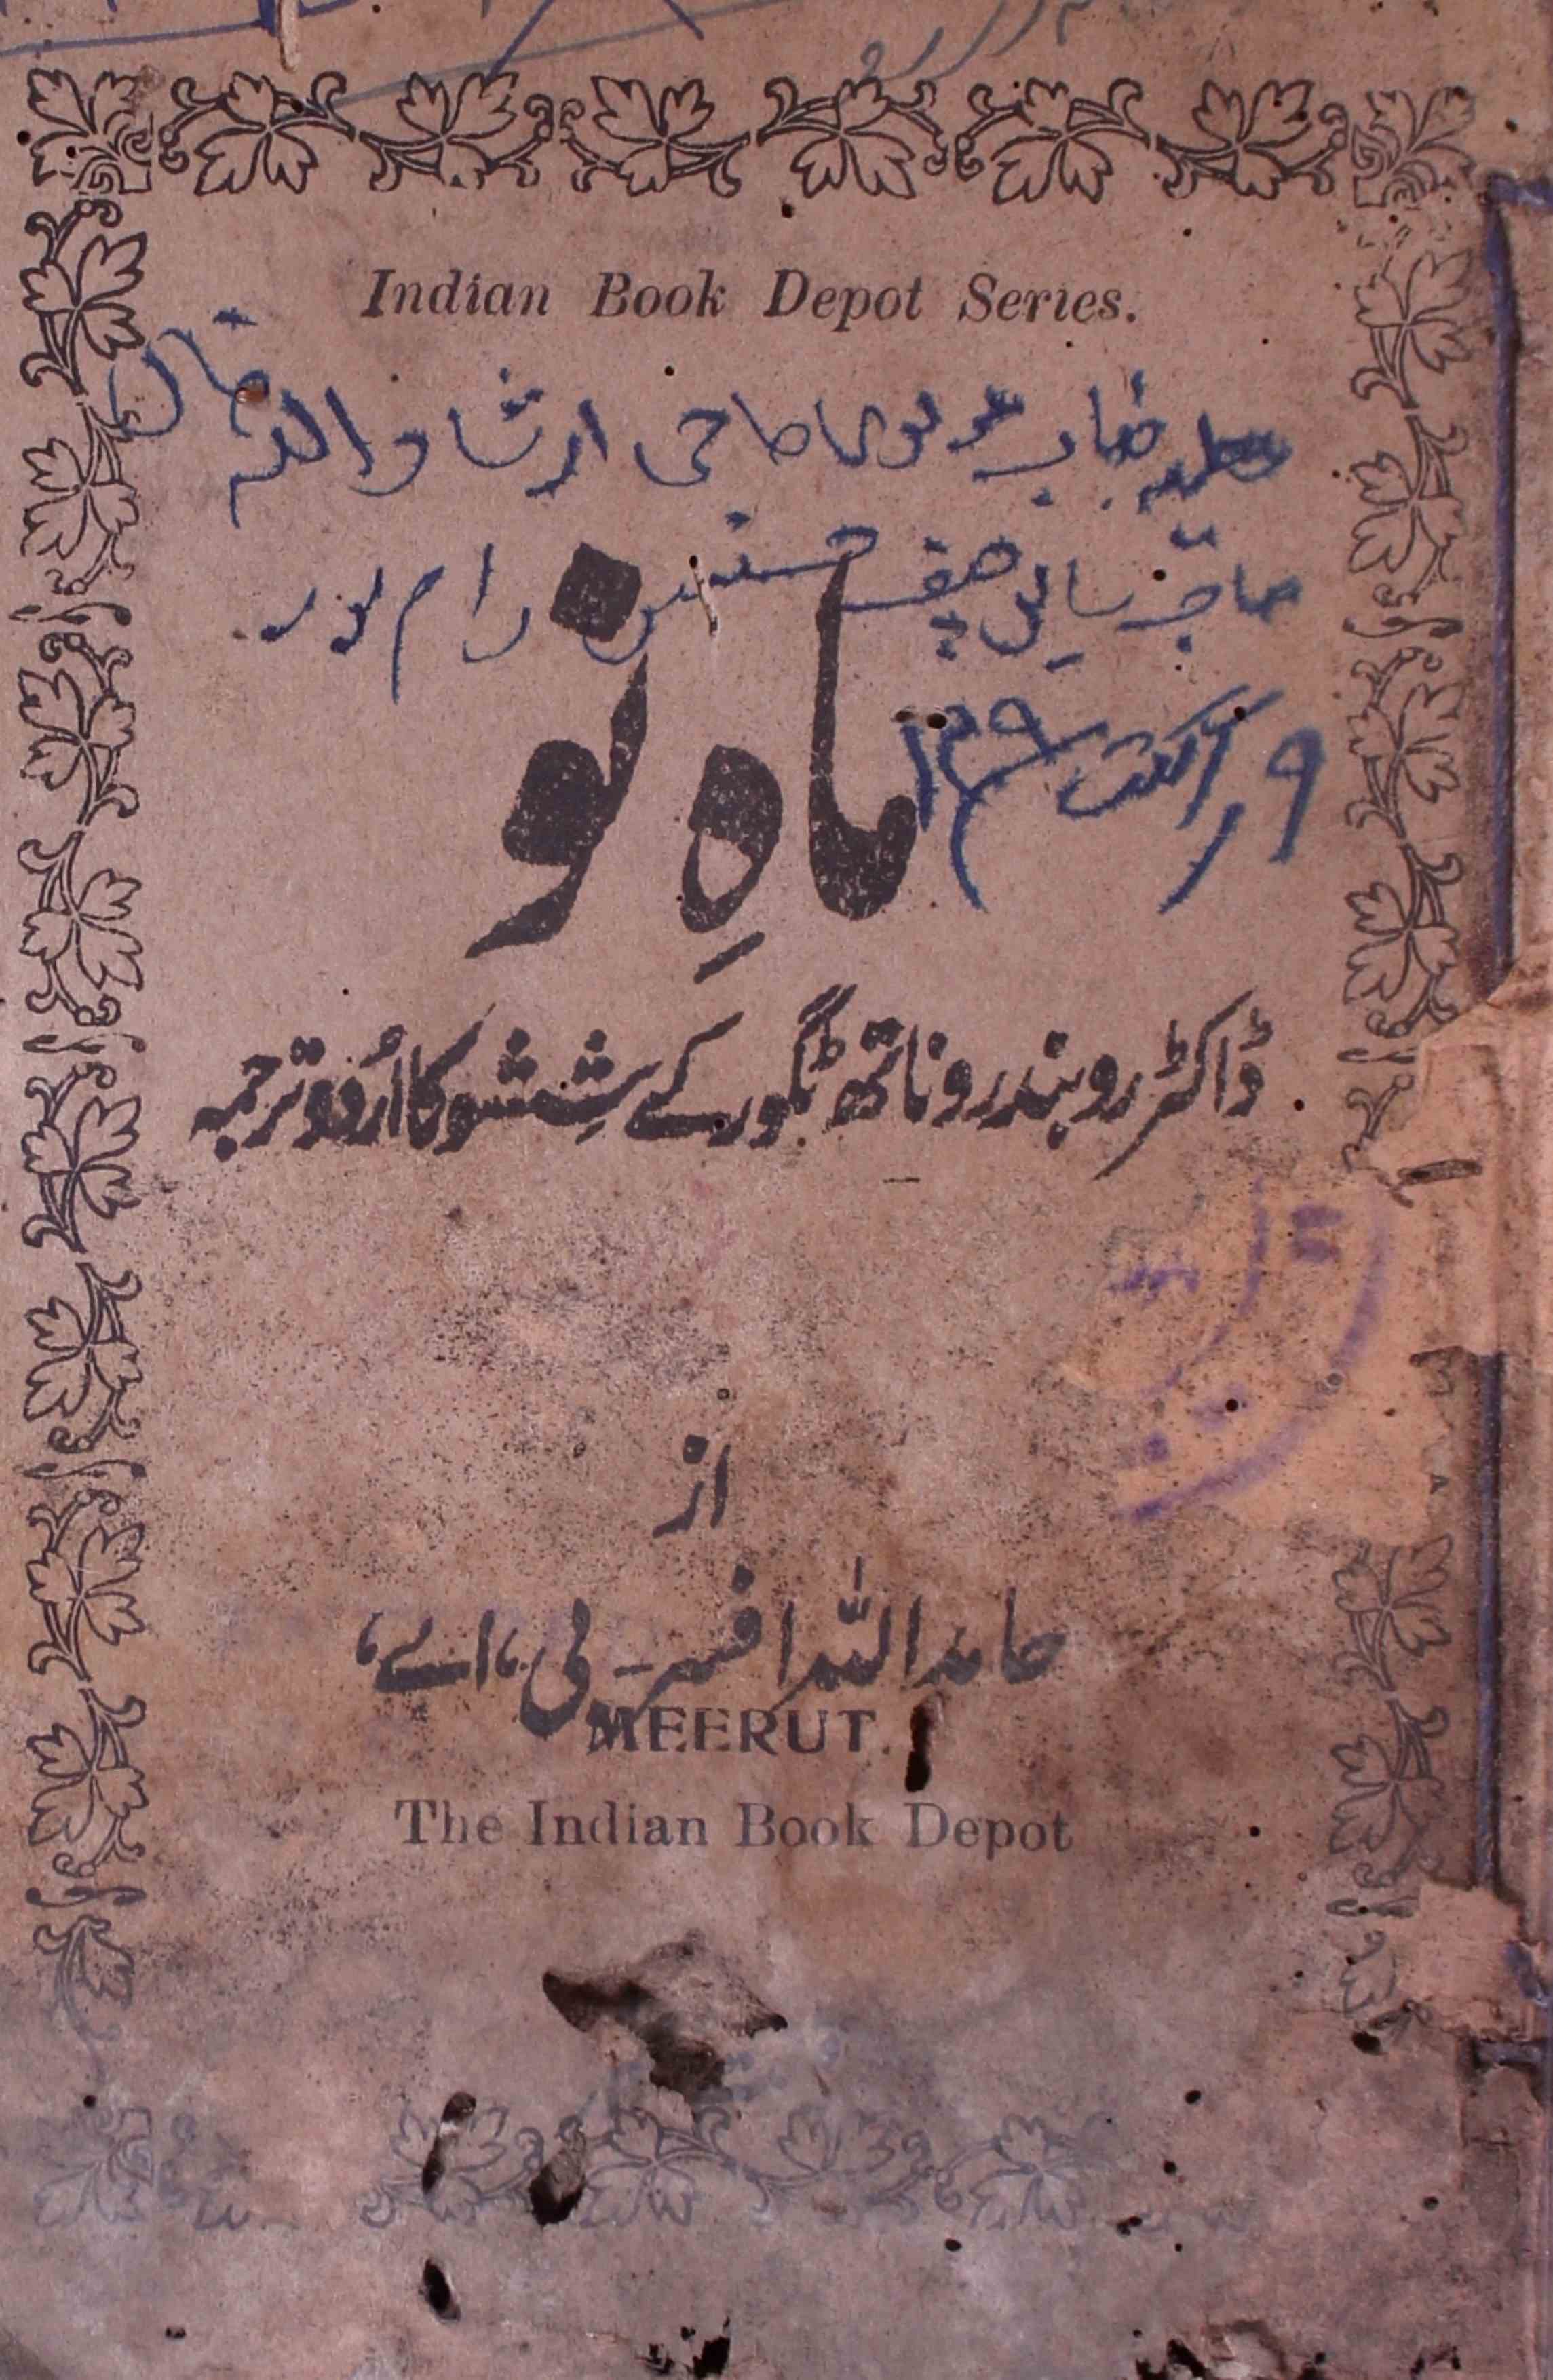 Indian Book Depot Series.
عطیہ جناب مولوی حاجی ارشاد اللہ خاں
صاحب رام پور
۹ر اگست ۴۹
ماہِ نو
ڈاکٹر روبندرو ناتھ ٹگور کے شِشو کا اُردو ترجمہ
از
حامداللہ افسر۔ بی، اے،
MEERUT.
The Indian Book Depot